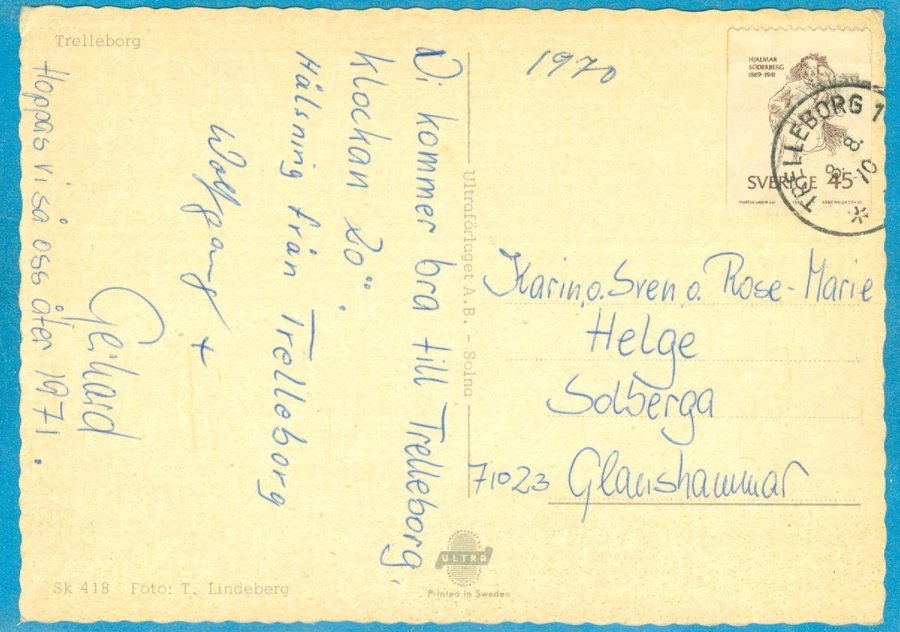 Trelleborg
Vi kommer bra till Trelleborg,
klockan 20°°.
Hälsning från Trelleborg
Wolfgang +
Gerhard
Hoppas vi så oss åter 1971.
Ultraförlaget A.B. - Solna
1970
HJALMAR
SÖDERBERG
1869-1941
SVERIGE 45
TRELLEBORG 1
8. 8.
10
Karin, o. Sven, o. Rose-Marie
Helge
Solberga
71023 Glanshammar
ULTRA
Printed in Sweden
Sk 418 Foto: T. Lindeberg